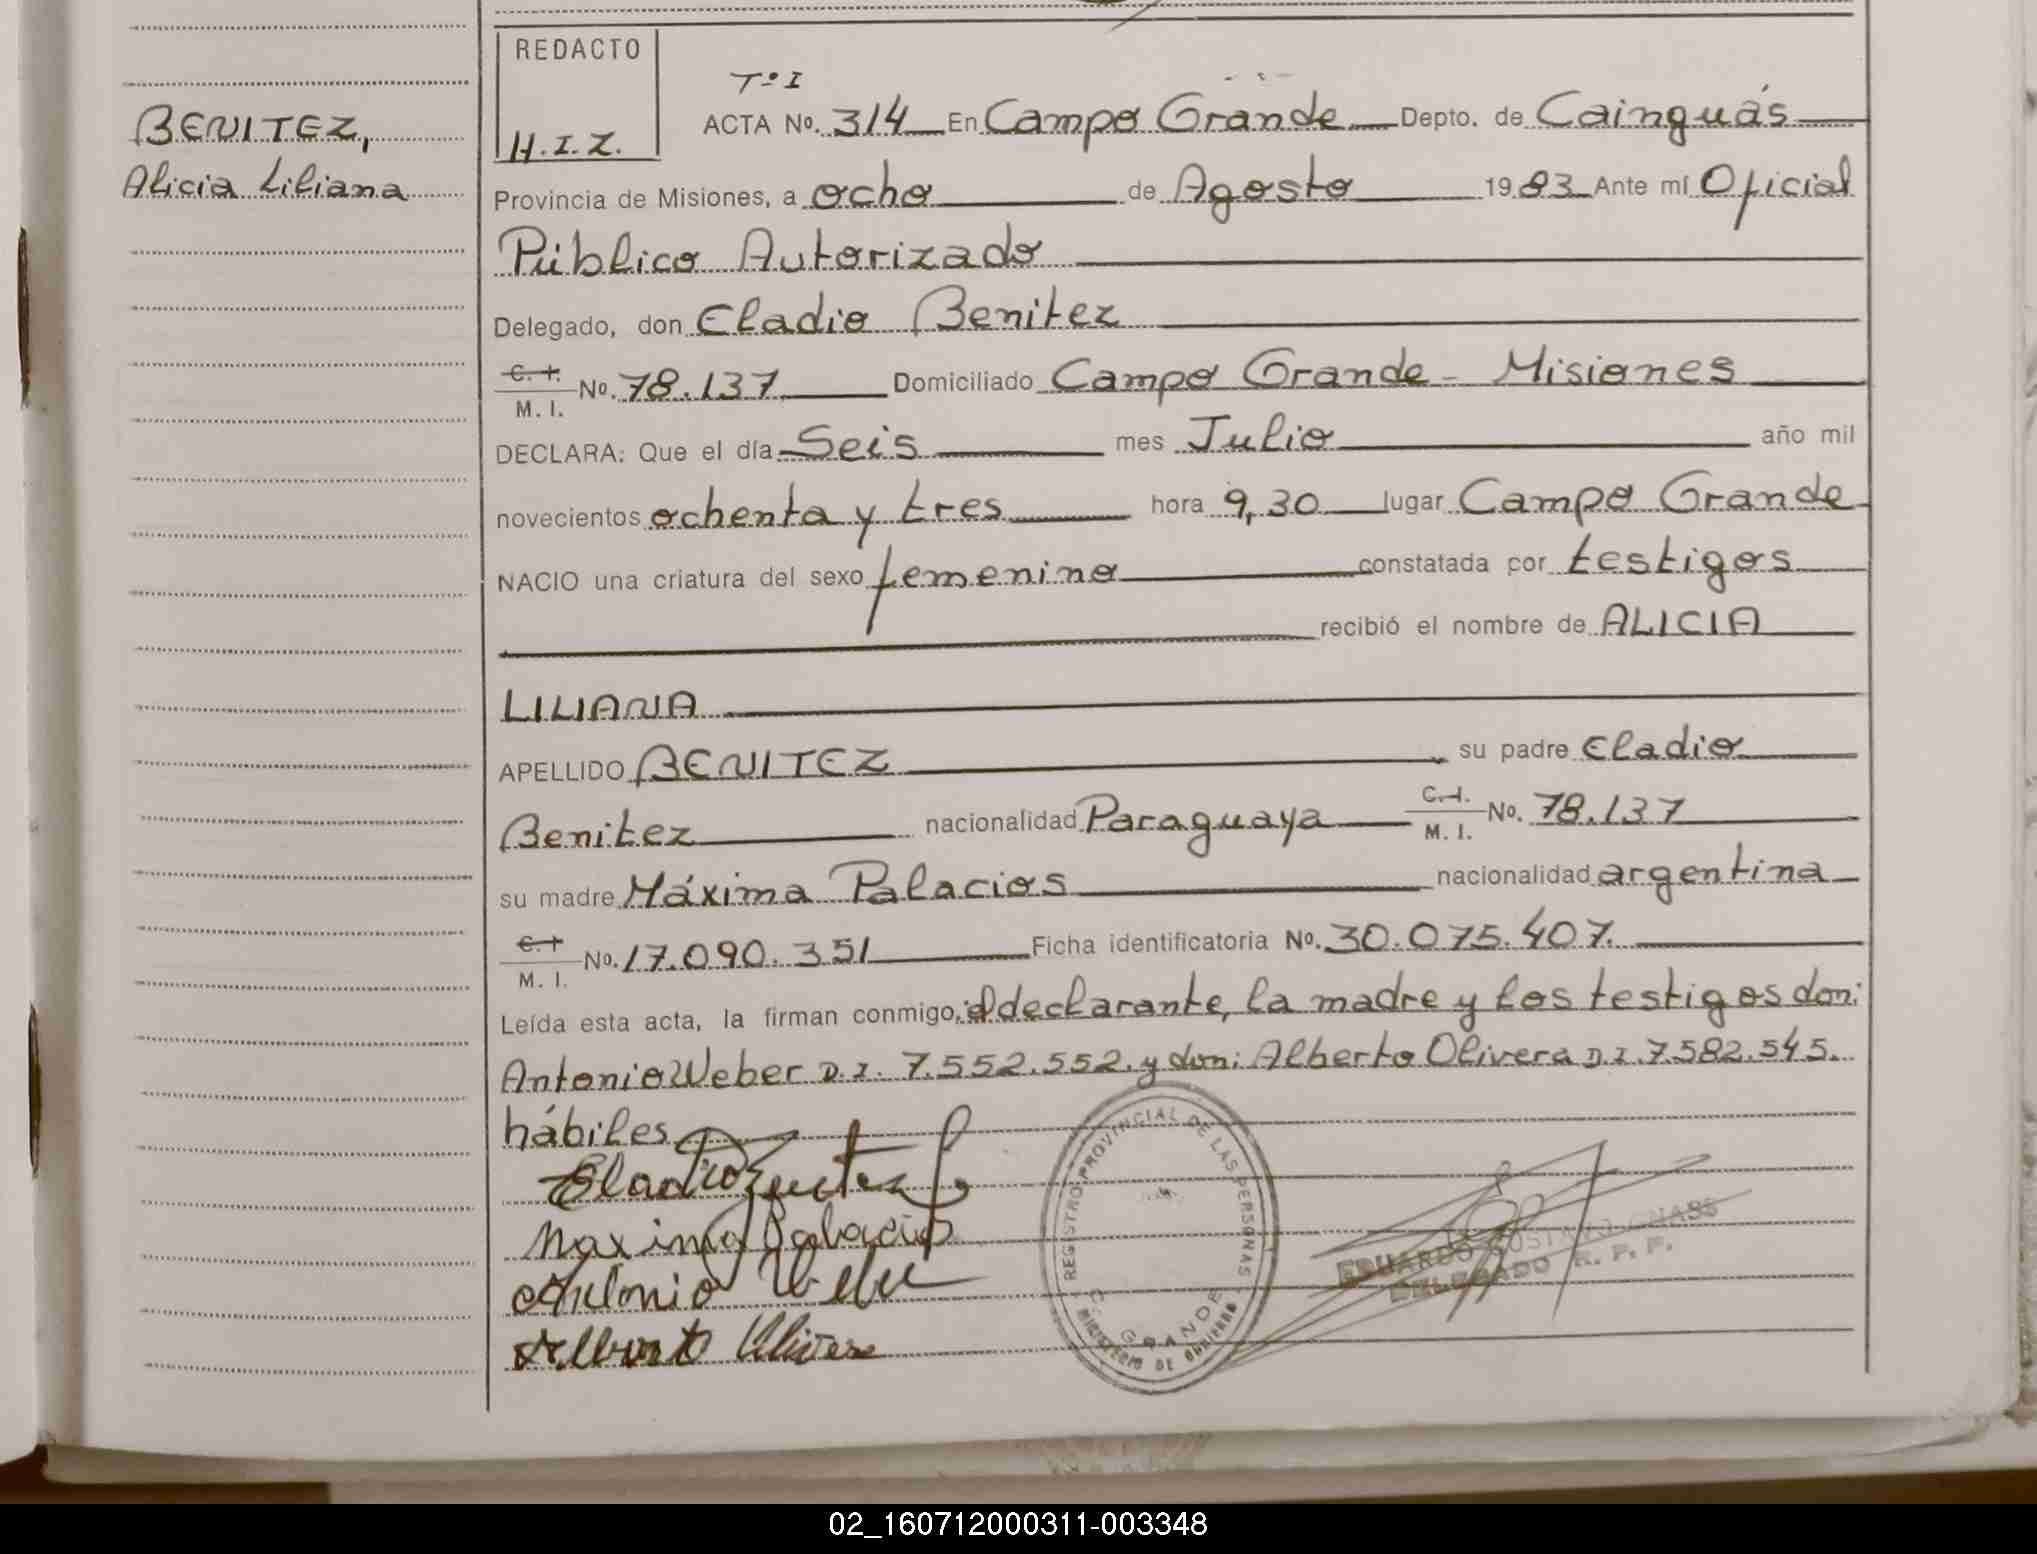 BENITEZ,
Alicia Liliana
REDACTO
H.I.Z.
Tº I
ACTA Nº. 314 En Campo Grande Depto. de Cainguás
Provincia de Misiones, a ocho de Agosto 1983 Ante mí Oficial
Público Autorizado
Delegado, don Eladio Benitez
C. I. M. I. Nº. 78.137 Domiciliado Campo Grande - Misiones
DECLARA: Que el día Seis mes Julio año mil
novecientos ochenta y tres hora 9,30 lugar Campo Grande
NACIO una criatura del sexo femenino constatada por testigos
recibió el nombre de ALICIA
LILIANA
APELLIDO BENITEZ su padre Eladio
Benitez nacionalidad Paraguaya C.I. M. I. Nº. 78.137
su madre Máxima Palacios nacionalidad argentina
C. I. M. I. Nº. 17.090.351 Ficha identificatoria Nº. 30.075.407.
Leída esta acta, la firman conmigo, el declarante, la madre y los testigos don:
Antonio Weber D.I. 7.552.552. y don: Alberto Olivera D.I. 7.582.545.
hábiles
Eladio Benitez
Maxima Palacios
Antonio Weber
Alberto Olivera
REGISTRO PROVINCIAL DE LAS PERSONAS
C. GRANDE
MINISTERIO DE GOBIERNO
EDUARDO
DELEGADO R. P. P.
02_160712000311-003348